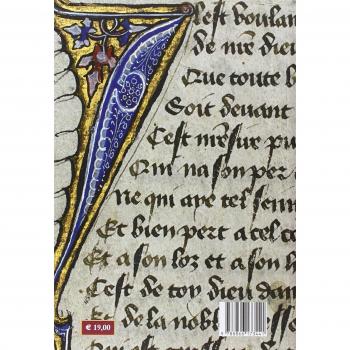 l est voulan
de mre dieu
Que toute b
Soit devant
C'est mesure pu
Qui na son per
ne qui aye tel senn
Et bien pert a cel co
Et a son loz et a son h
C'est de toy dieu dam
Et de la nobl
€ 19,00